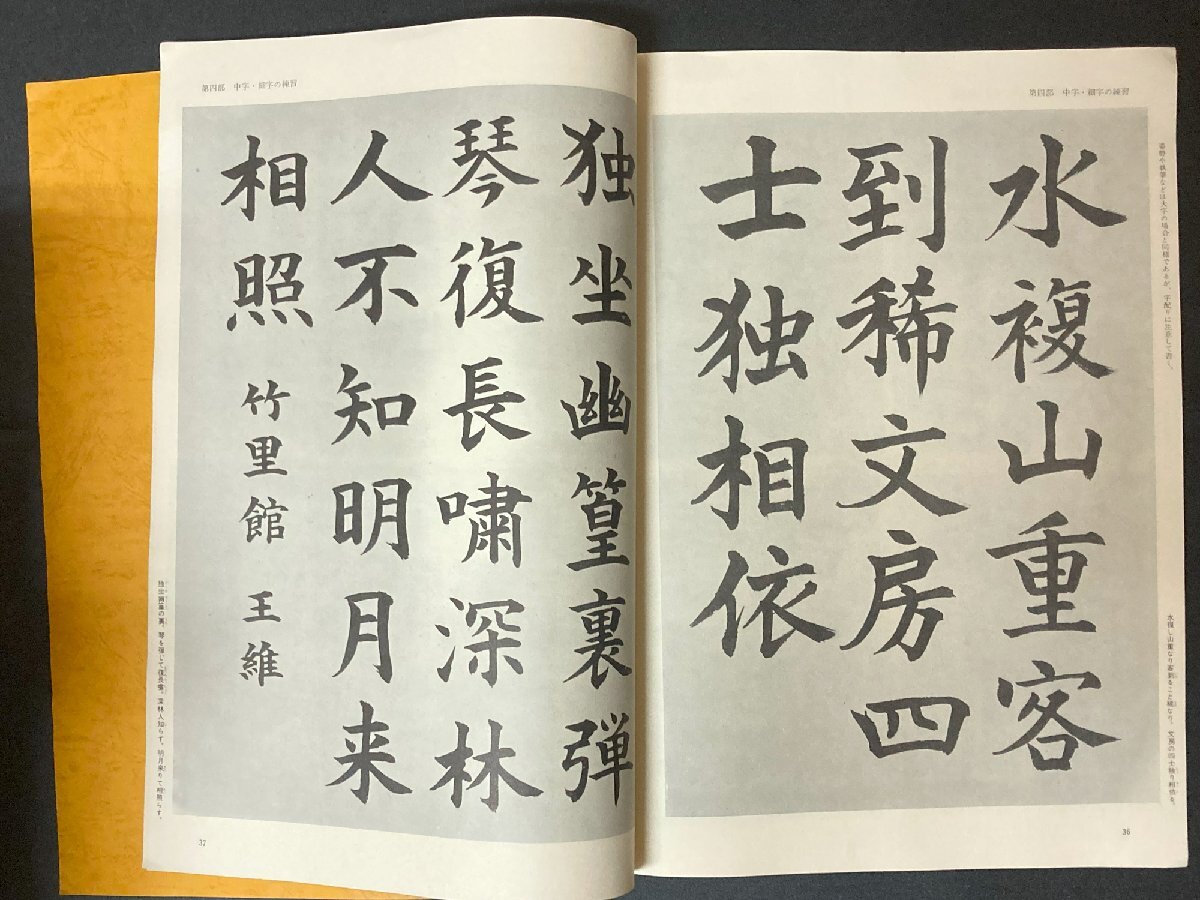 第四部 中字・細字の練習
姿勢や執筆などは大字の場合と同様であるが、字配りに注意して書く。
水複山重客
到稀文房四
士独相依
水複し山重なり客到ること稀なり、文房の四士独り相依る。
36
第四部 中字・細字の練習
独坐幽篁裏弾
琴復長嘯深林
人不知明月来
相照 竹里館 王維
独坐幽篁の裏、琴を弾じて復長嘯。深林人知らず、明月来りて相照らす。
37